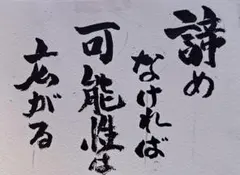 諦め
なければ
可能性は
広がる